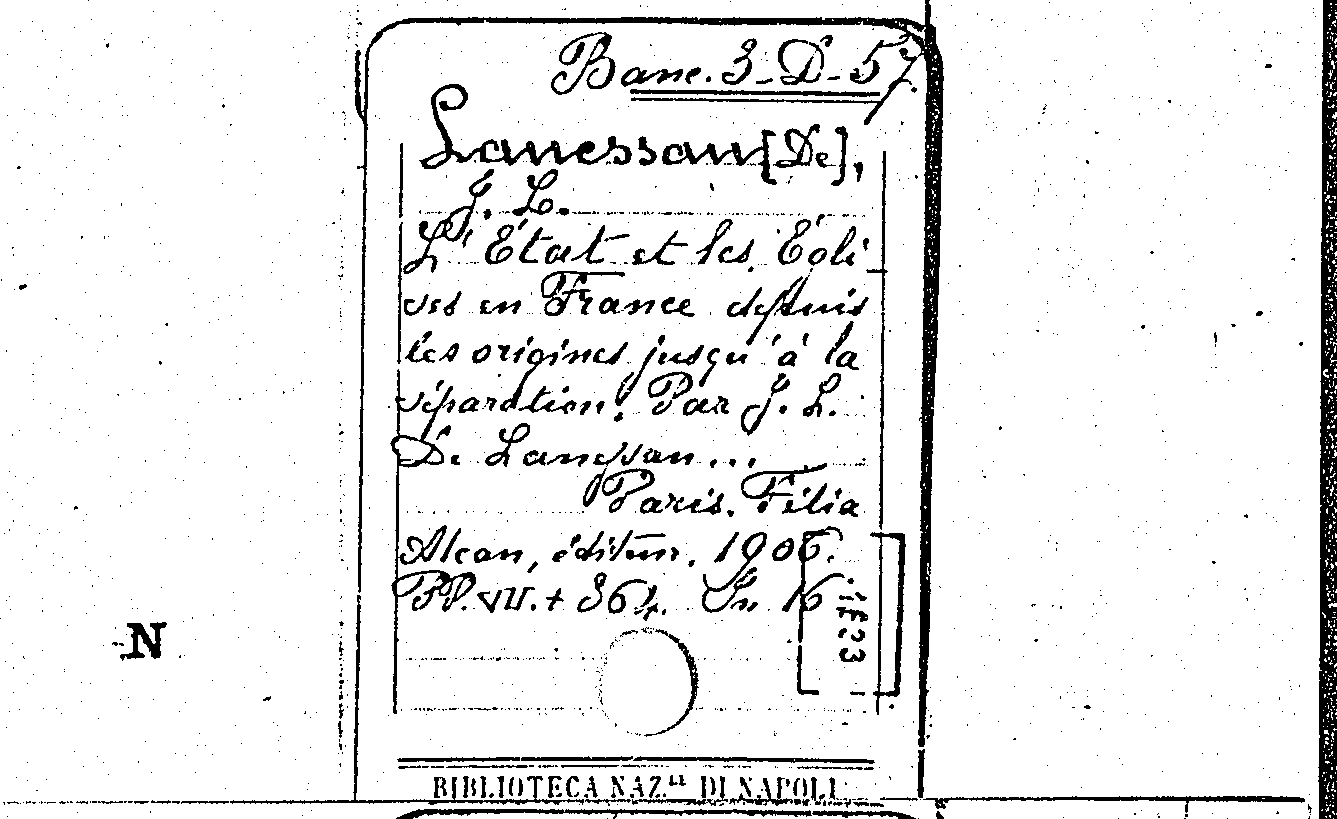 Banc. 3-D-57
Lanessan [De],
J. L.
L'État et les Égli-
ses en France depuis
les origines jusqu'à la
séparation. Par J. L.
De Lanessan...
Paris. Félia
Alcan, éditeur. 1906.
PP. VII. + 364. In 16
1823
N
BIBLIOTECA NAZ.LE DI NAPOLI